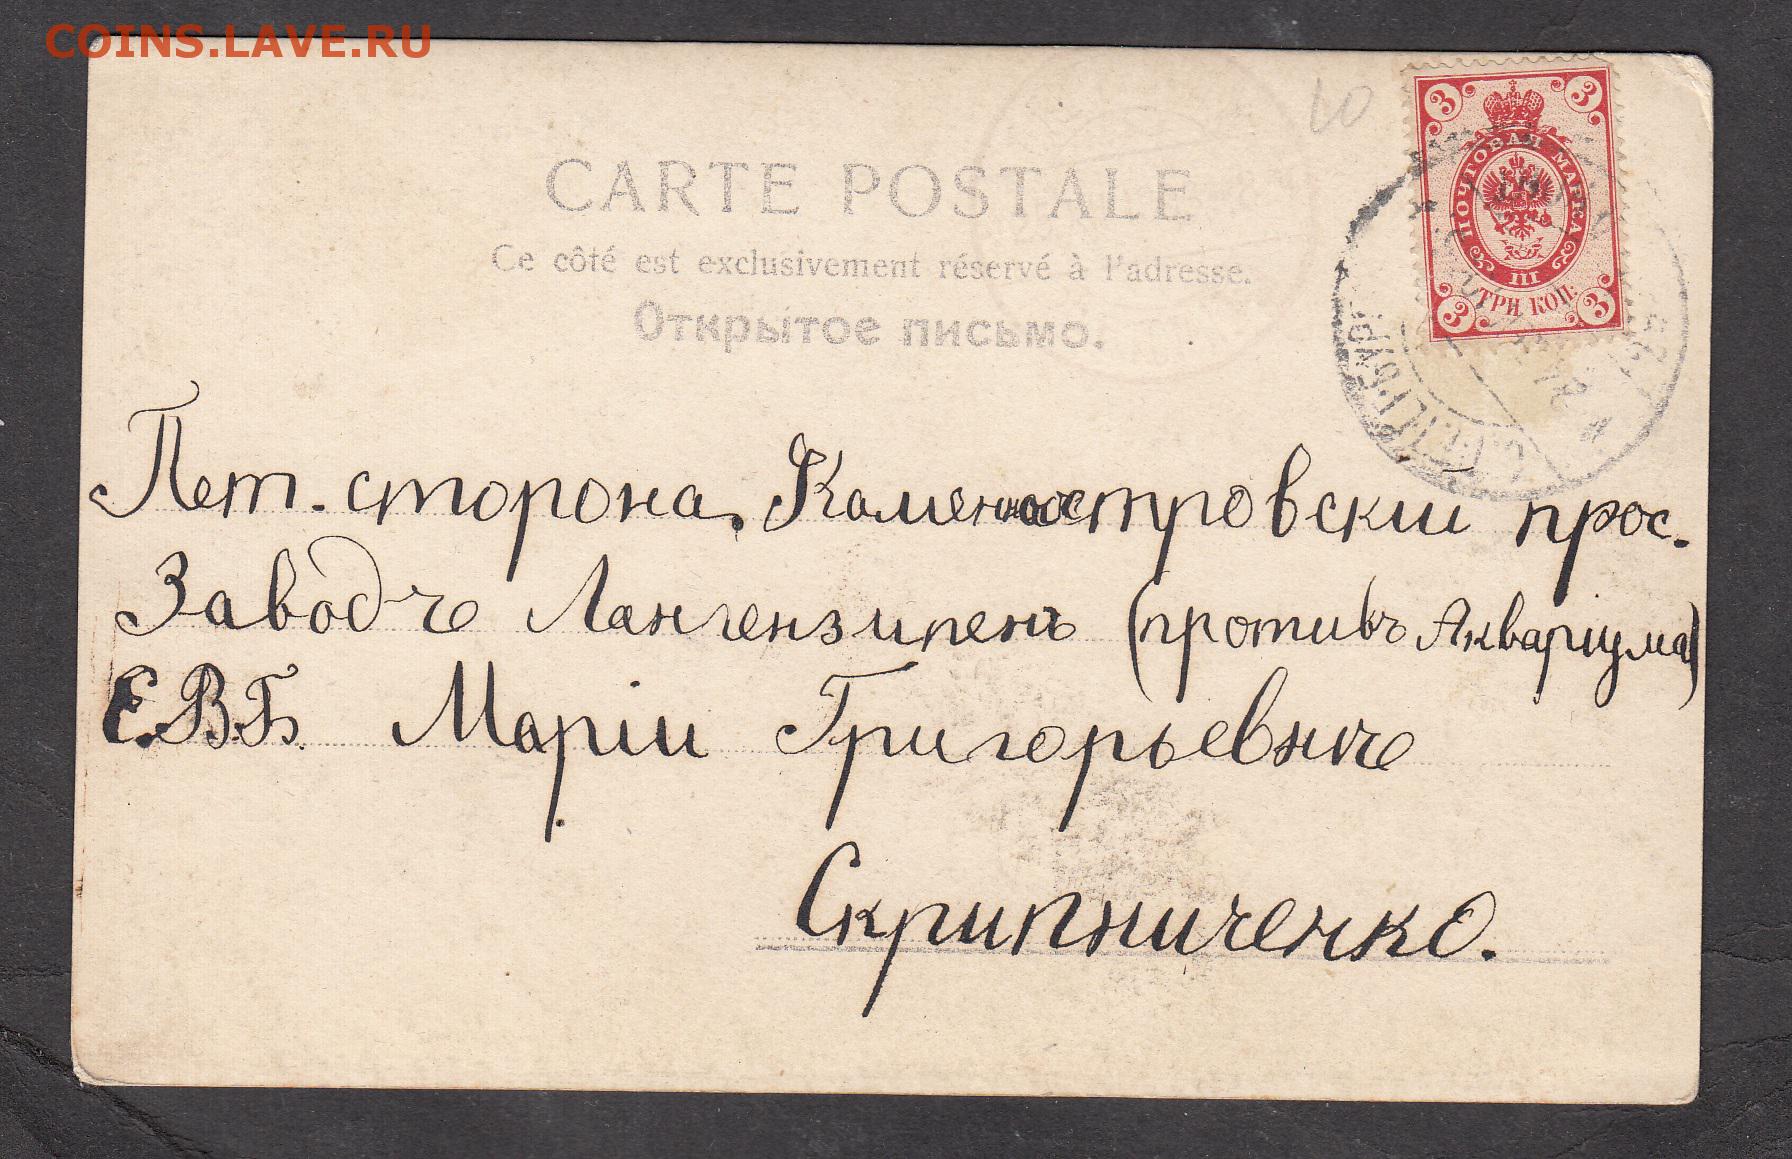 COINS.LAVE.RU
10
CARTE POSTALE
Ce côté est exclusivement réservé à l'adresse.
Открытое письмо.
3 3
ПОЧТОВАЯ МАРКА
III
ТРИ КОП.
3 3
С.ПЕТЕРБУРГ
Пет. сторона. Каменноостровскiй прос.
Завод-ъ Лангензипенъ (противъ Акварiума)
Е.В.Б. Марiи Григорьевнѣ
Скрипниченко.